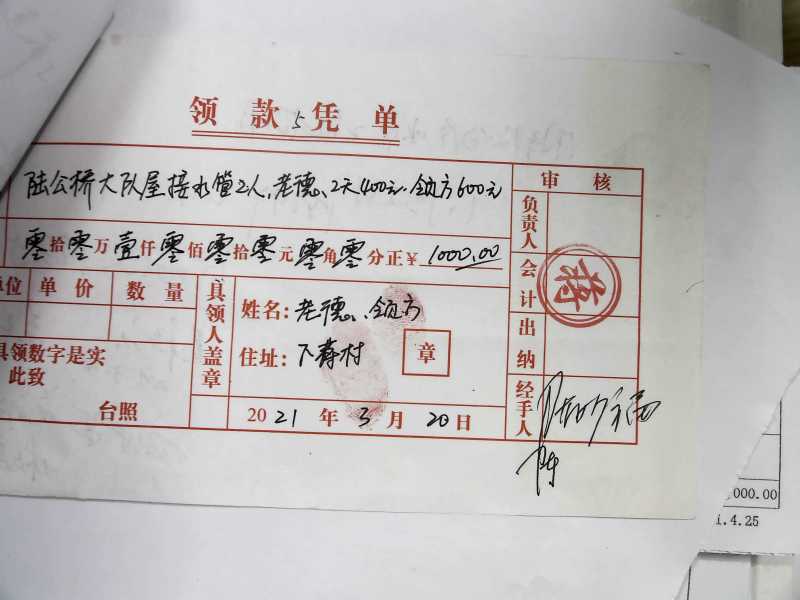 领款凭单
5
陆公桥大队屋接水管2人,老德、2天400元.领方600元
零拾零万壹仟零佰零拾零元零角零分正¥ 1000.00
审核
负责人
会计
出纳
经手人
单价 数量
具领人盖章
姓名: 老德、领方
住址: 下蒋村
章
具领数字是实
此致
台照
2021年3月20日
蒋
000.00
1.4.25